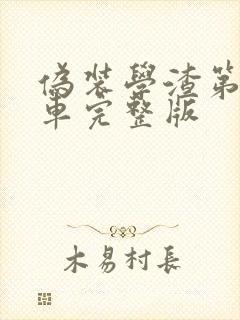 偽装學渣第
車完整版
木易村長